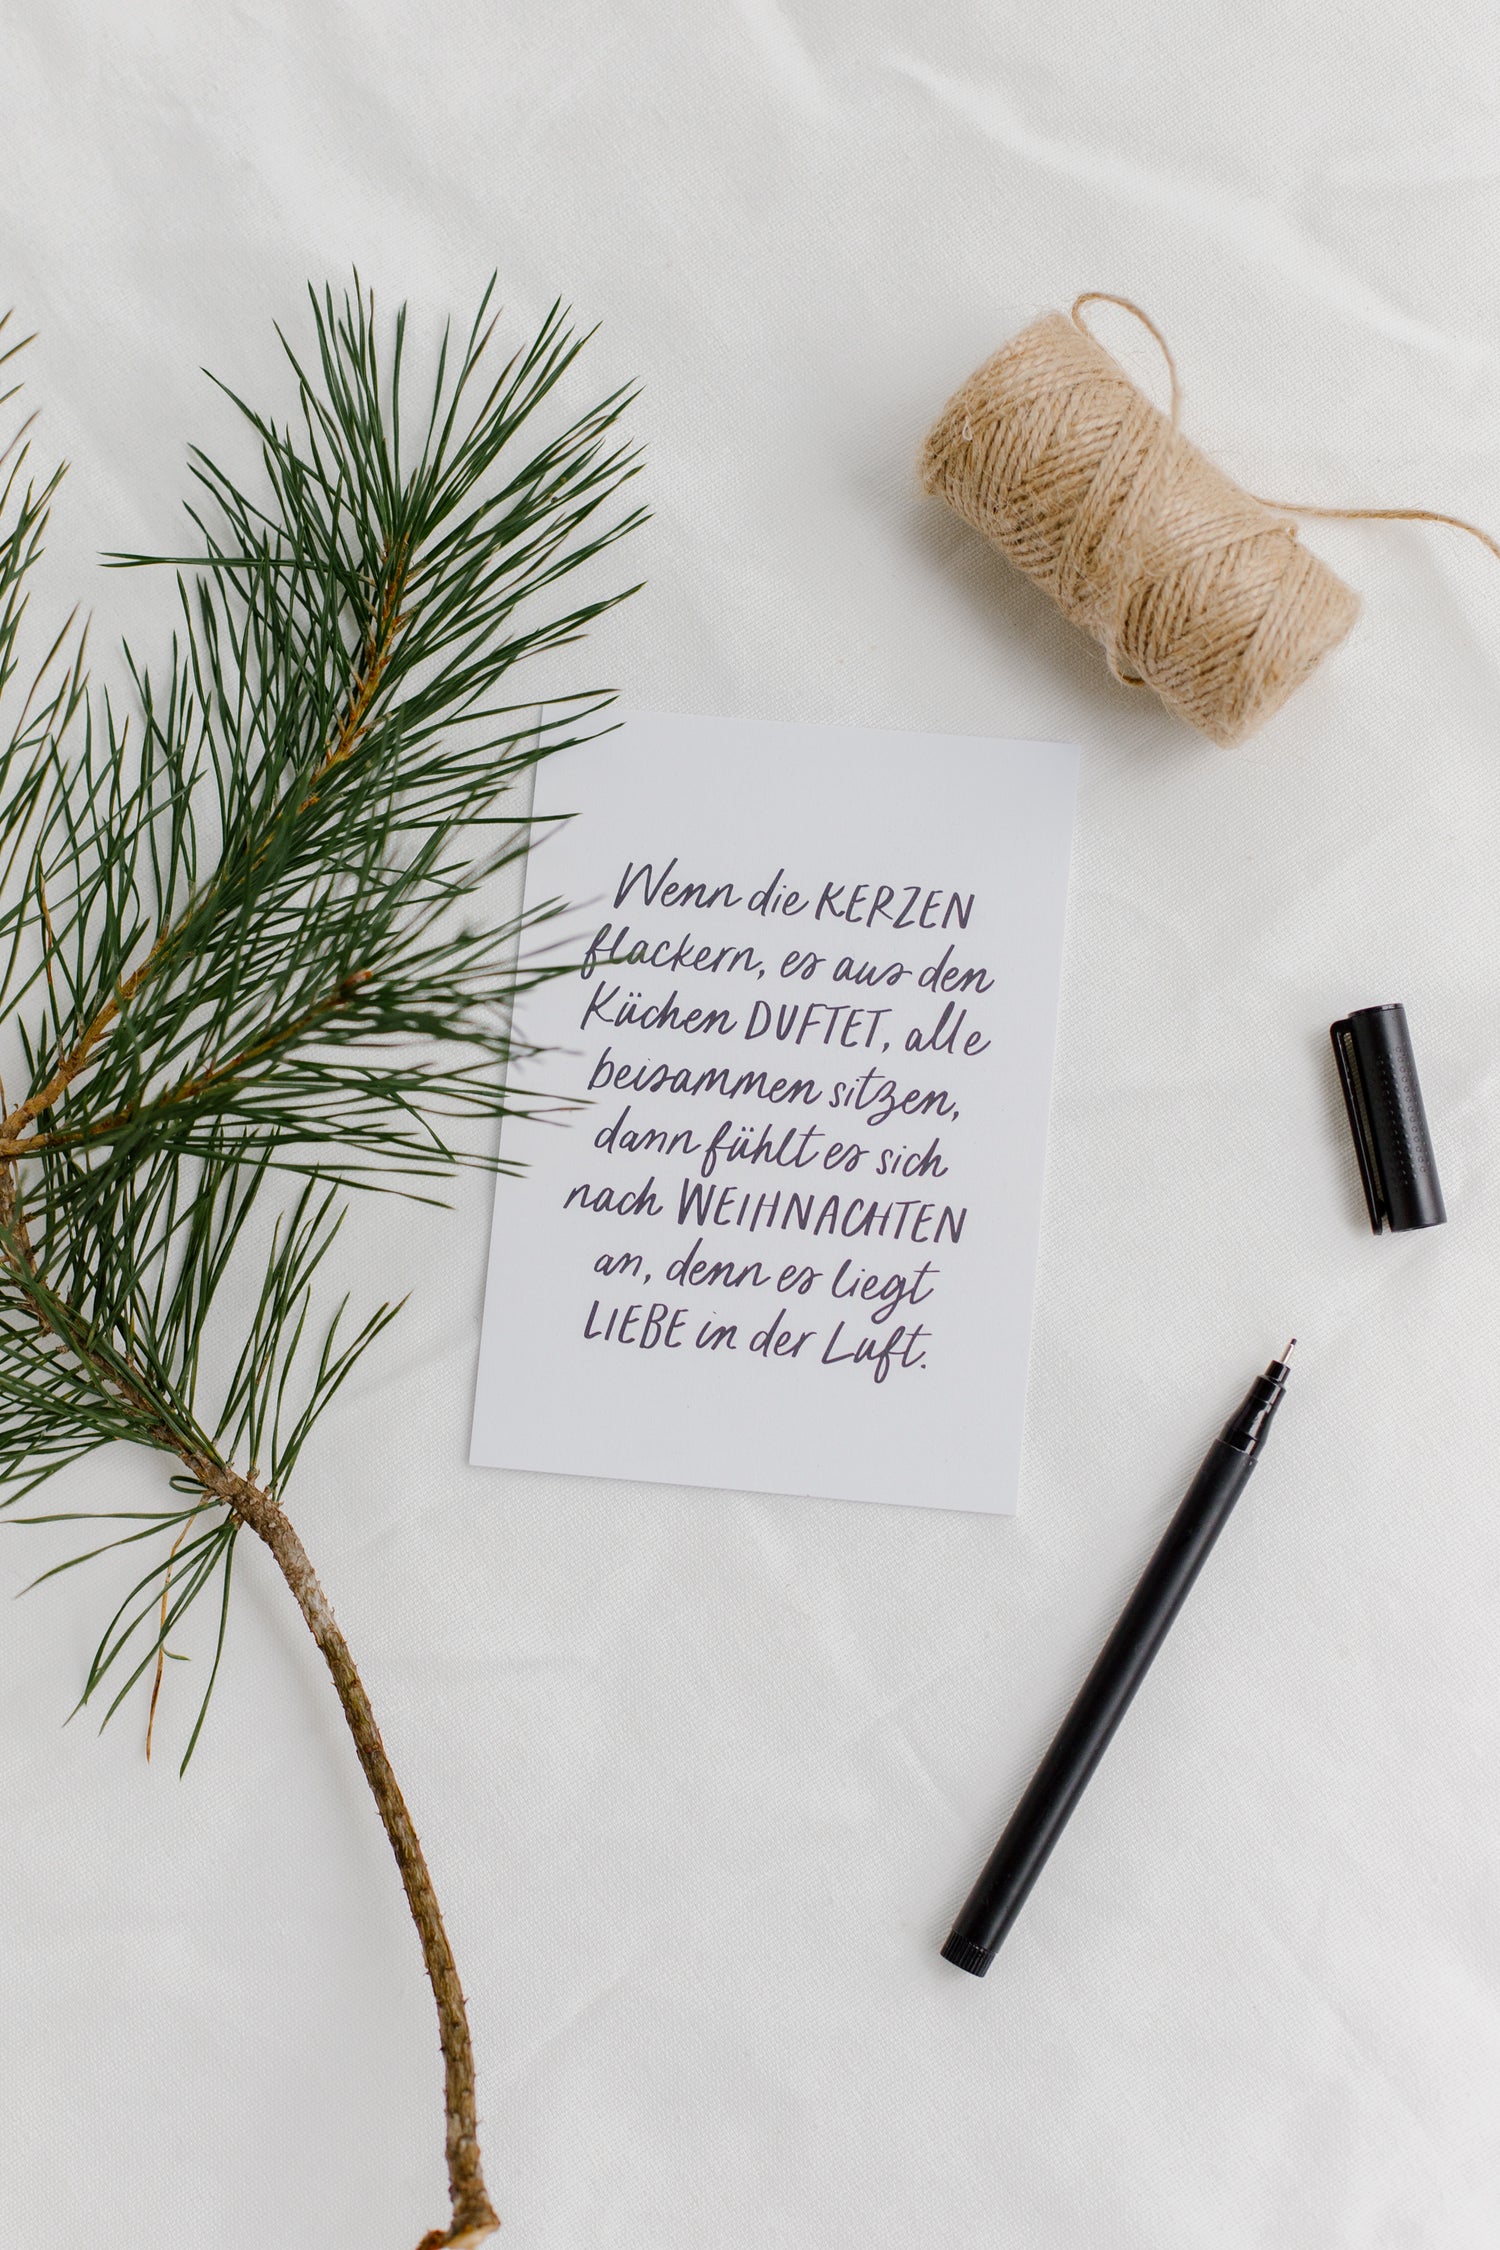 Wenn die KERZEN
flackern, es aus den
Küchen DUFTET, alle
beisammen sitzen,
dann fühlt es sich
nach WEIHNACHTEN
an, denn es liegt
LIEBE in der Luft.